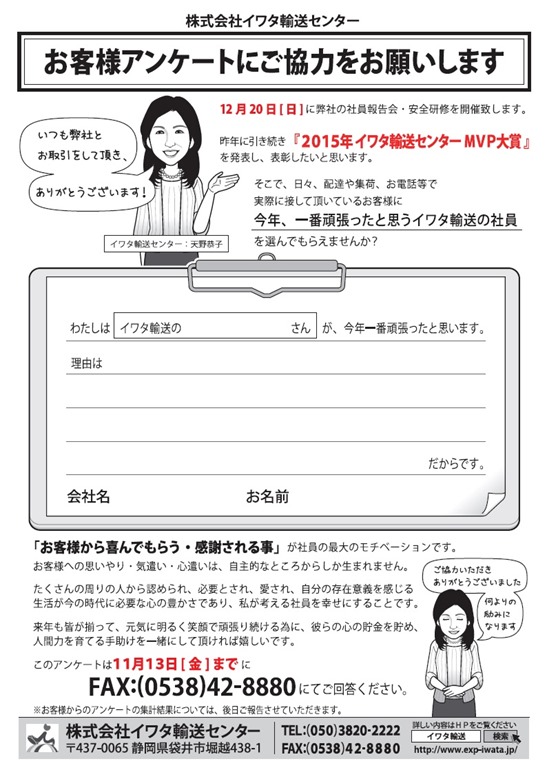 株式会社イワタ輸送センター
お客様アンケートにご協力をお願いします
いつも弊社と
お取引をして頂き、
ありがとうございます！
イワタ輸送センター：天野恭子
12月20日[日]に弊社の社員報告会・安全研修を開催致します。
昨年に引き続き『2015年イワタ輸送センターMVP大賞』
を発表し、表彰したいと思います。
そこで、日々、配達や集荷、お電話等で
実際に接して頂いているお客様に
今年、一番頑張ったと思うイワタ輸送の社員
を選んでもらえませんか？
わたしは イワタ輸送の さん が、今年一番頑張ったと思います。
理由は
だからです。
会社名 お名前
「お客様から喜んでもらう・感謝される事」が社員の最大のモチベーションです。
お客様への思いやり・気遣い・心遣いは、自主的なところからしか生まれません。
たくさんの周りの人から認められ、必要とされ、愛され、自分の存在意義を感じる
生活が今の時代に必要な心の豊かさであり、私が考える社員を幸せにすることです。
来年も皆が揃って、元気に明るく笑顔で頑張り続ける為に、彼らの心の貯金を貯め、
人間力を育てる手助けを一緒にして頂ければ嬉しいです。
ご協力いただき
ありがとうございました
何よりの
励みに
なります
このアンケートは11月13日[金]までに
FAX:(0538)42-8880にてご回答ください。
※お客様からのアンケートの集計結果については、後日ご報告させていただきます。
株式会社イワタ輸送センター
〒437-0065 静岡県袋井市堀越438-1
TEL:(050)3820-2222
FAX:(0538)42-8880
詳しい内容はHPをご覧ください
イワタ輸送 検索
http://www.exp-iwata.jp/